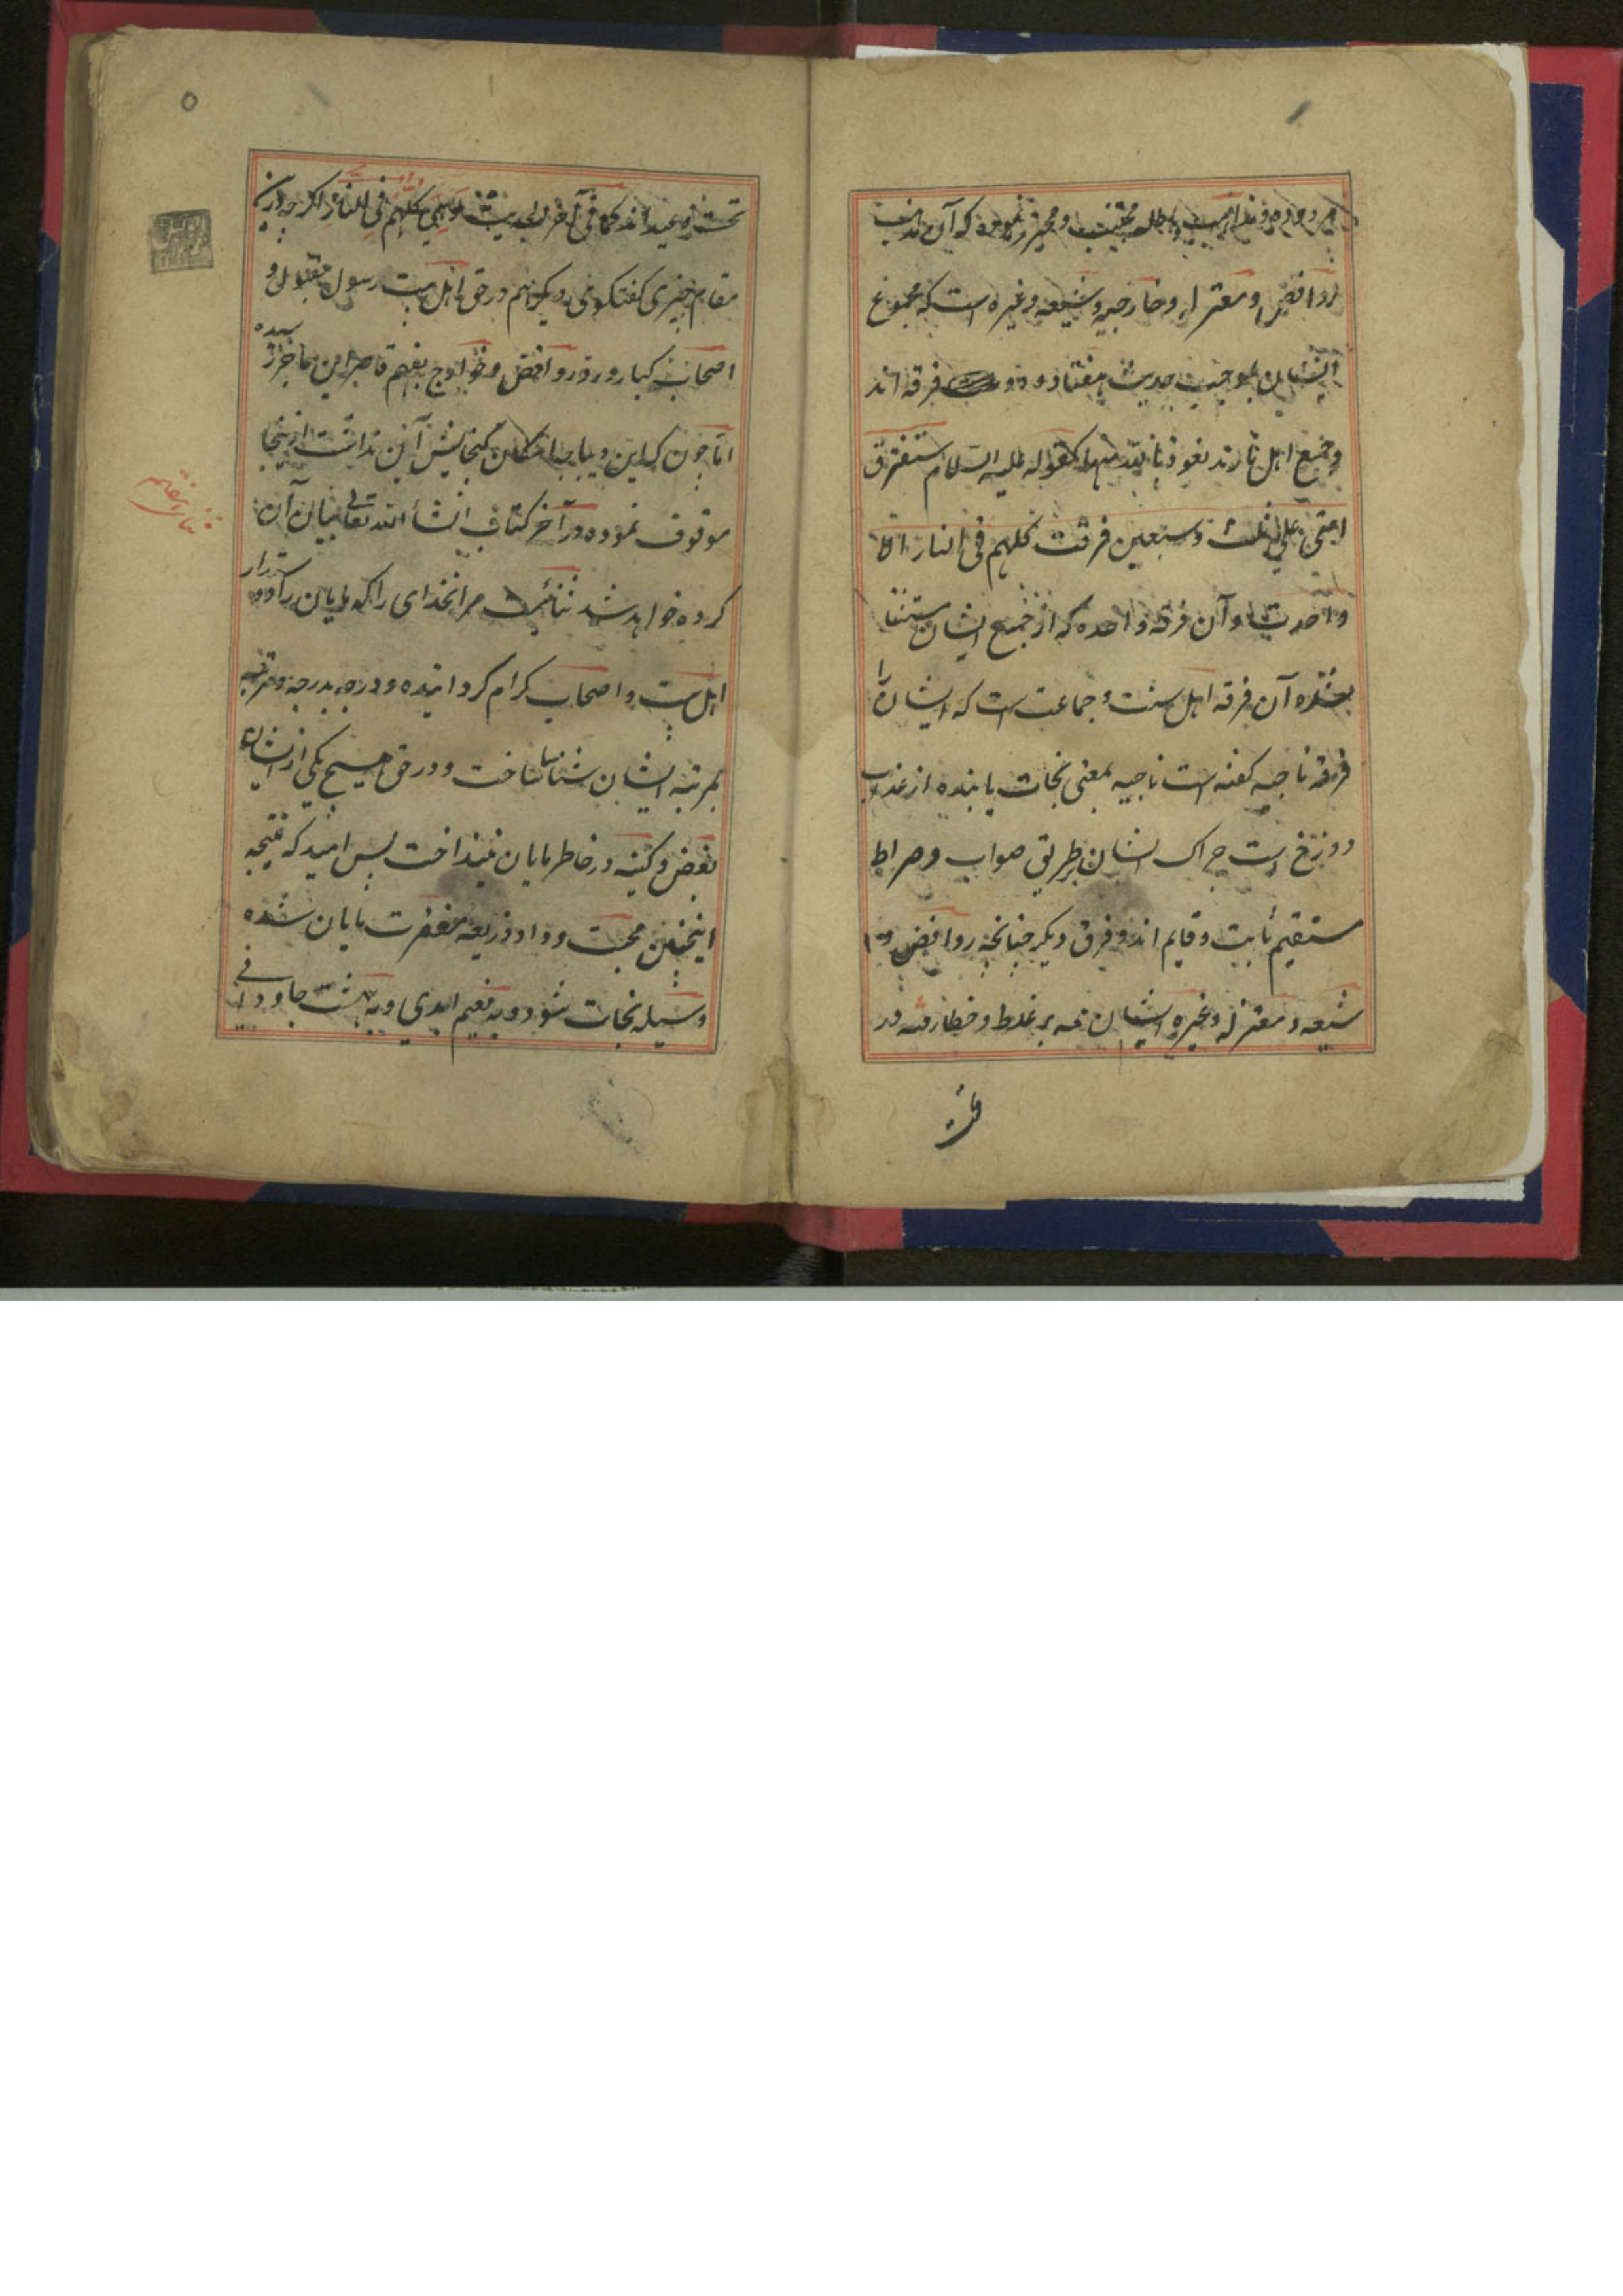 مردوده و مذاهب باطله مجتنب و محترز نموده که آن مذاهب
روافض و معتزله و خارجیه و شیعه و غیره است که مجموع
ایشان بموجب حدیث هفتاد و دو فرقه اند
و جمیع اهل نارند نعوذ بالله منها کقوله علیه السلام ستفترق
امتی علی ثلث و سبعین فرقت کلهم فی النار الا
واحدت و آن فرقه واحده که از جمیع ایشان مستثنا
شده آن فرقه اهل سنت و جماعت است که ایشان را
فرقه ناجیه کفته است ناجیه بمعنی نجات یابنده از عذاب
دوزخ است چراک ایشان بر طریق صواب و صراط
مستقیم ثابت و قایم اند و فرق دیکر چنانچه روافض و
شیعه و معتزله و غیره ایشان همه بر غلط و خطا رفته در
۵
کما فی آخر الحدیث کلهم فی النار اکرچه درین
مقام چیزی کفتکوی دیکر هم در حق اهل بیت رسول مقبول و
اصحاب کبار و رد روافض و خوارج بفهم قاصر این عاجز رسیده
اما چون که این دیباچه امکان کنجایش آن نداشت ازینجا
موقوف نموده در آخر کتاب انشأ الله تعالی بیان آن
کرده خواهد شد ثنائیت مر انخدای را که مایان را دوستدار
اهل بیت و اصحاب کرام کردانیده و درجه بدرجه و مرتبه
بمرتبه ایشان شناخت و در حق هیچ یکی از ایشان
بغض و کینه در خاطر مایان نینداخت پس امید که نتیجه
اینچنین محبت و وداد ذریعه مغفرت مایان شده
وسیله نجات شود و به نعیم ابدی و به بهشت جاودانی